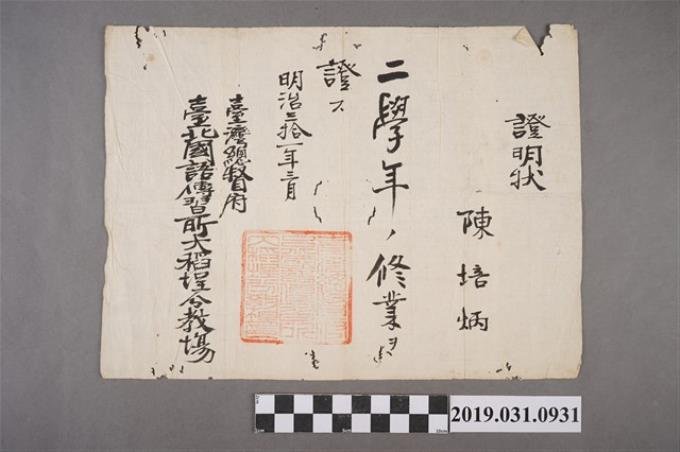 證明狀
陳培炳
二學年ノ修業ヲ
證ス
明治三拾一年三月
臺灣總督府
臺北國語傳習所大稻埕分教場
2019.031.0931